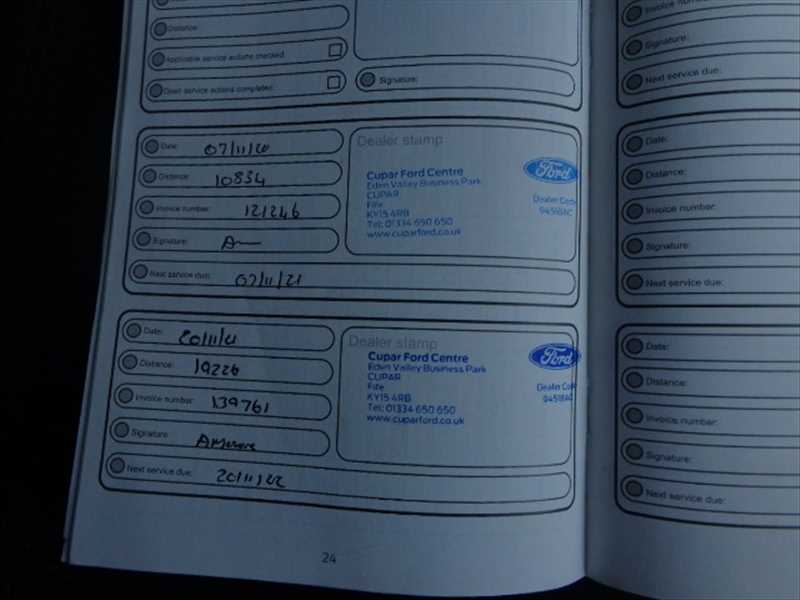 Distance:
Applicable service actions checked:
Open service actions completed:
Signature:
Date: 07/11/20
Distance: 10834
Invoice number: 121246
Signature:
Next service due: 07/11/21
Dealer stamp
Cupar Ford Centre
Eden Valley Business Park
CUPAR
Fife
KY15 4RB
Tel: 01334 650 650
www.cuparford.co.uk
Ford
Dealer Code
Date: 20/11/21
Distance: 19226
Invoice number: 139761
Signature:
Next service due: 20/11/22
Dealer stamp
Cupar Ford Centre
Eden Valley Business Park
CUPAR
Fife
KY15 4RB
Tel: 01334 650 650
www.cuparford.co.uk
Ford
Dealer Code
24
Invoice number:
Signature:
Next service due:
Date:
Distance:
Invoice number:
Signature:
Next service due:
Date:
Distance:
Invoice number:
Signature:
Next service due: